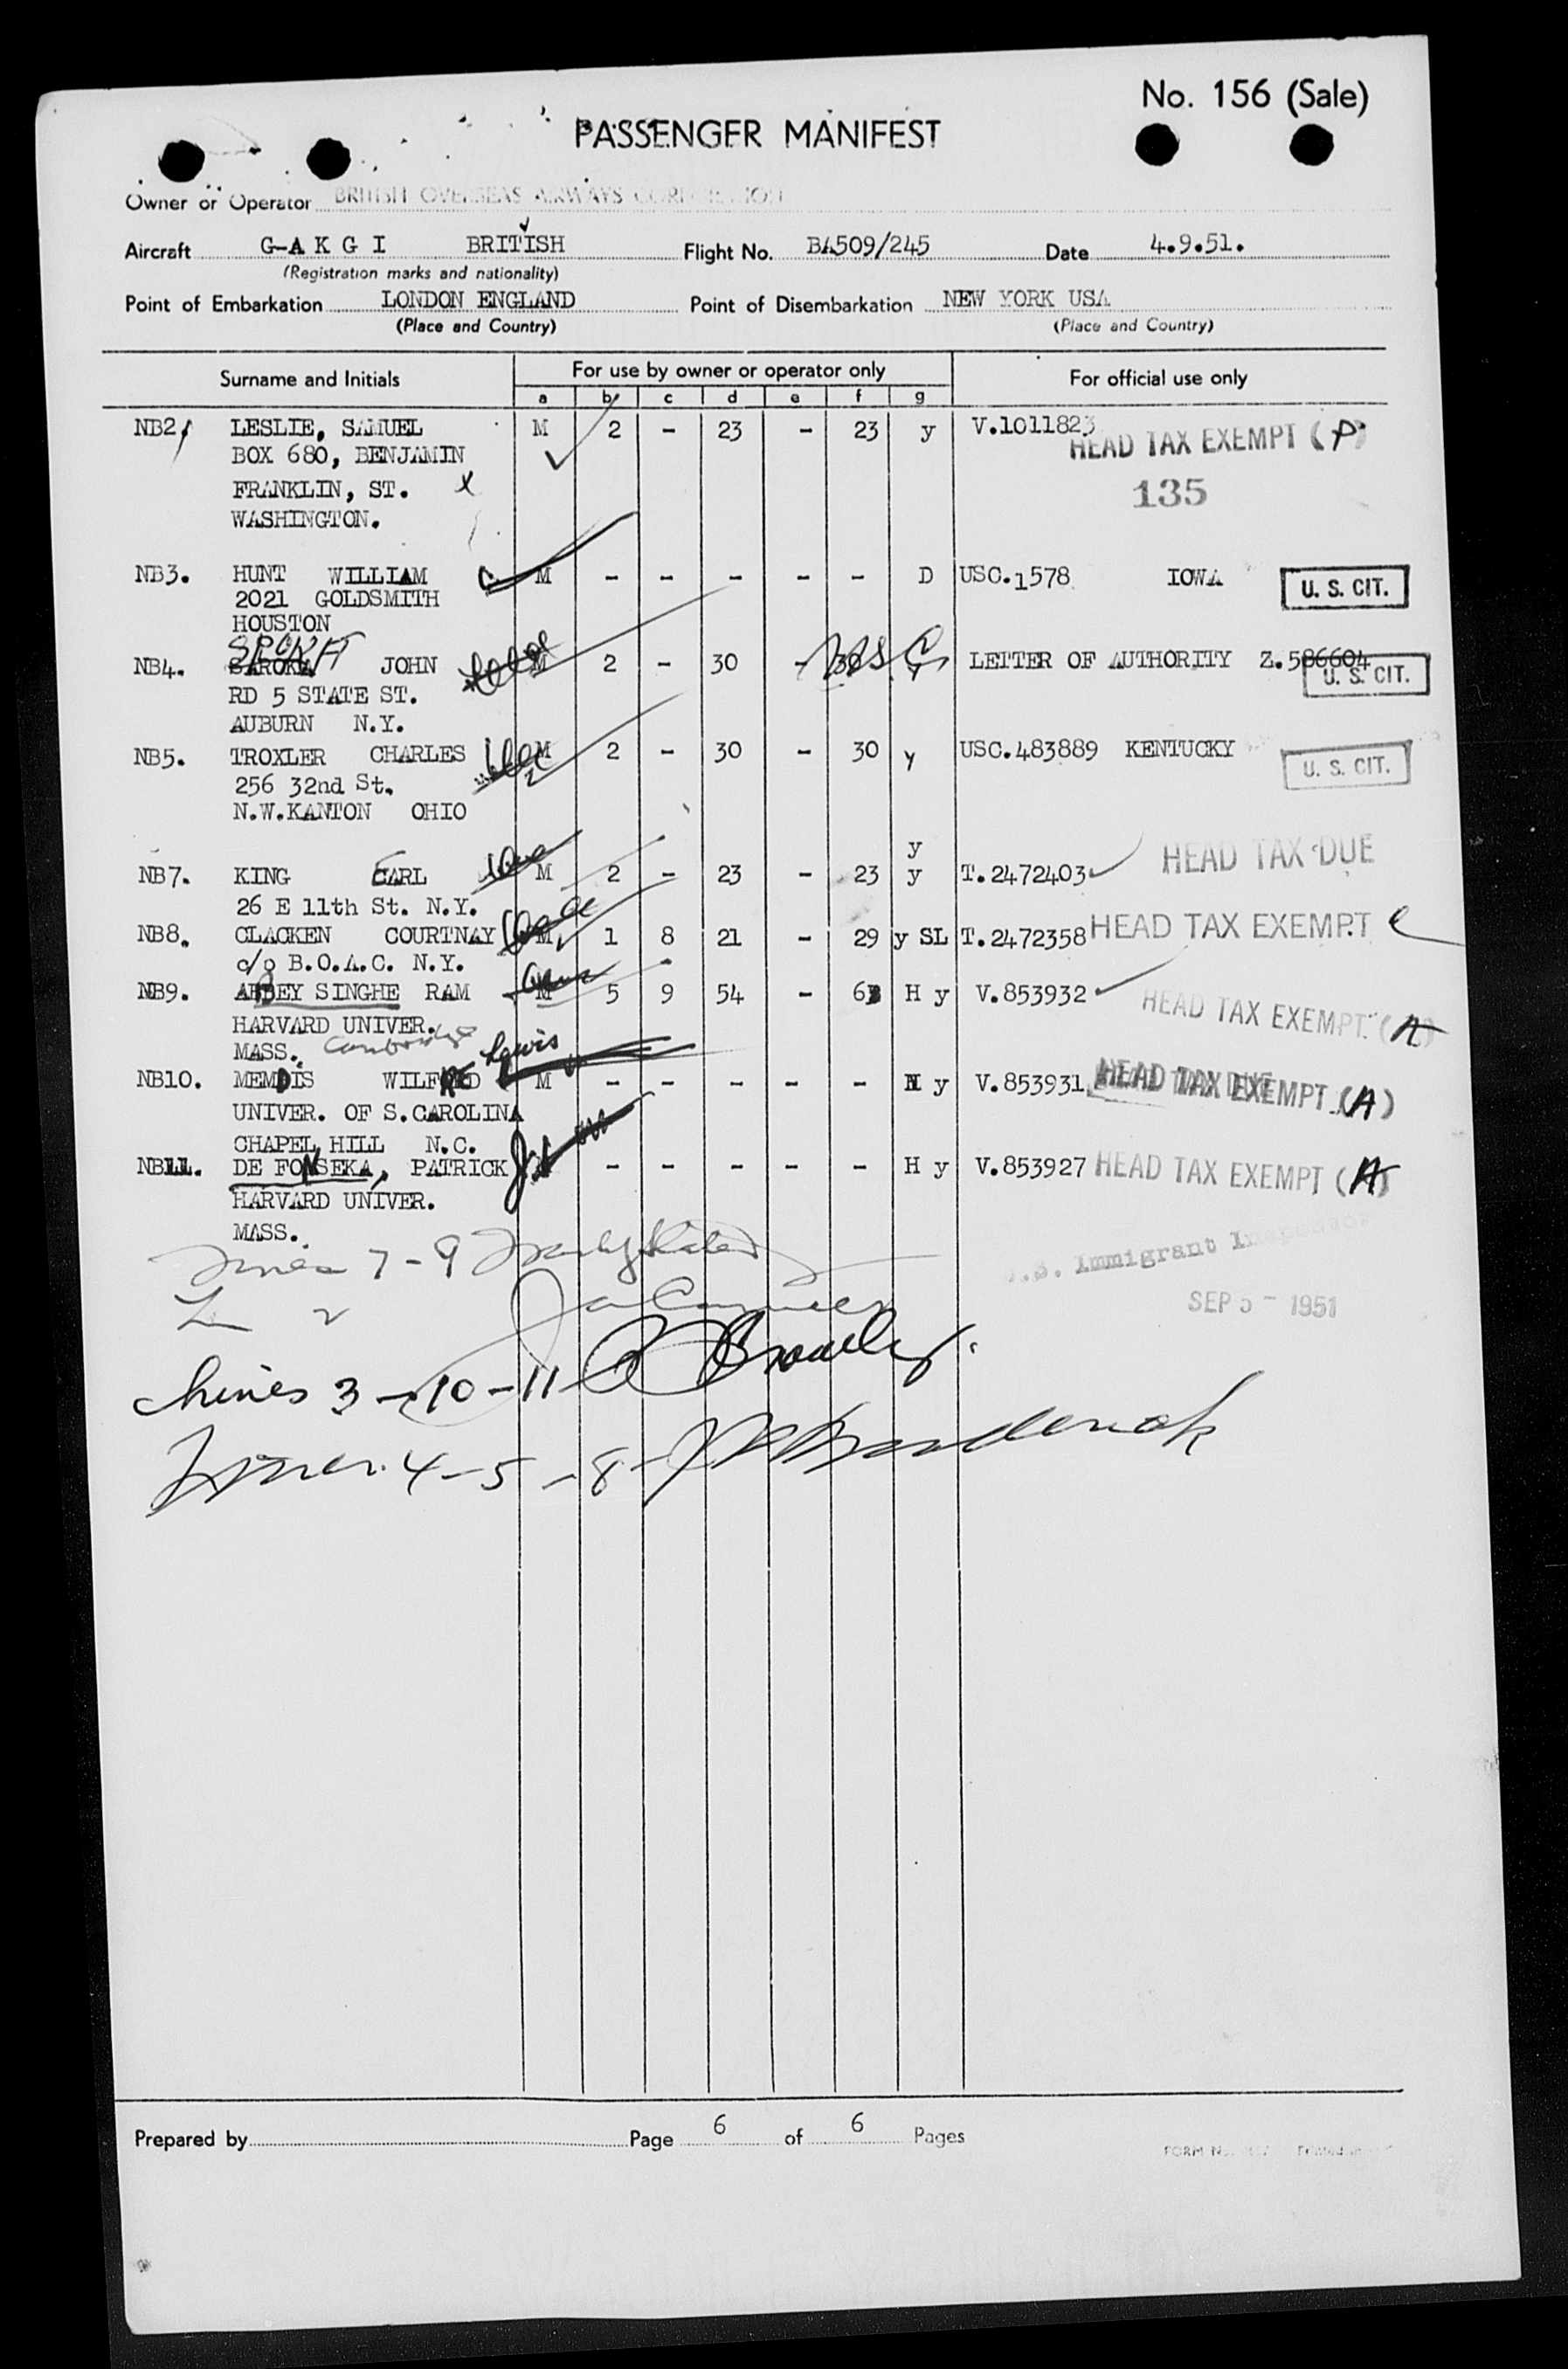 No. 156 (Sale)
PASSENGER MANIFEST
Owner or Operator BRITISH OVERSEAS AIRWAYS CORPORATION
Aircraft G-A K G I BRITISH Flight No. BA509/245 Date 4.9.51.
(Registration marks and nationality)
Point of Embarkation LONDON ENGLAND Point of Disembarkation NEW YORK USA
(Place and Country) (Place and Country)
Surname and Initials For use by owner or operator only For official use only
a b c d e f g
NB2 LESLIE, SAMUEL M 2 - 23 - 23 y V.1011823
BOX 680, BENJAMIN HEAD TAX EXEMPT (P)
FRANKLIN, ST. X 135
WASHINGTON.
NB3. HUNT WILLIAM C. M - - - - - D USC.1578 IOWA U. S. CIT.
2021 GOLDSMITH
HOUSTON
SROKA
NB4. SAROKA JOHN M 2 - 30 - 30 U.S.C. LETTER OF AUTHORITY Z.586604 U. S. CIT.
RD 5 STATE ST.
AUBURN N.Y.
NB5. TROXLER CHARLES M 2 - 30 - 30 y USC.483889 KENTUCKY U. S. CIT.
256 32nd St.
N.W.KANTON OHIO
y
NB7. KING EARL M 2 - 23 - 23 y T.2472403 HEAD TAX DUE
26 E 11th St. N.Y.
NB8. CLACKEN COURTNAY M 1 8 21 - 29 y SL T.2472358 HEAD TAX EXEMPT
c/o B.O.A.C. N.Y.
NB9. ABBEY SINGHE RAM M 5 9 54 - 63 H y V.853932 HEAD TAX EXEMPT (A)
HARVARD UNIVER.
MASS. Cambridge
NB10. MENDIS WILFRED Lewis M - - - - - y V.853931 HEAD TAX EXEMPT (A)
UNIVER. OF S.CAROLINA
CHAPEL HILL N.C.
NB11. DE FONSEKA, PATRICK - - - - - H y V.853927 HEAD TAX EXEMPT (A)
HARVARD UNIVER.
MASS.
7-9
U.S. Immigrant Inspector
SEP 5 - 1951
Lines 3-10-11
Lines 4-5-8-
Prepared by Page 6 of 6 Pages
FORM